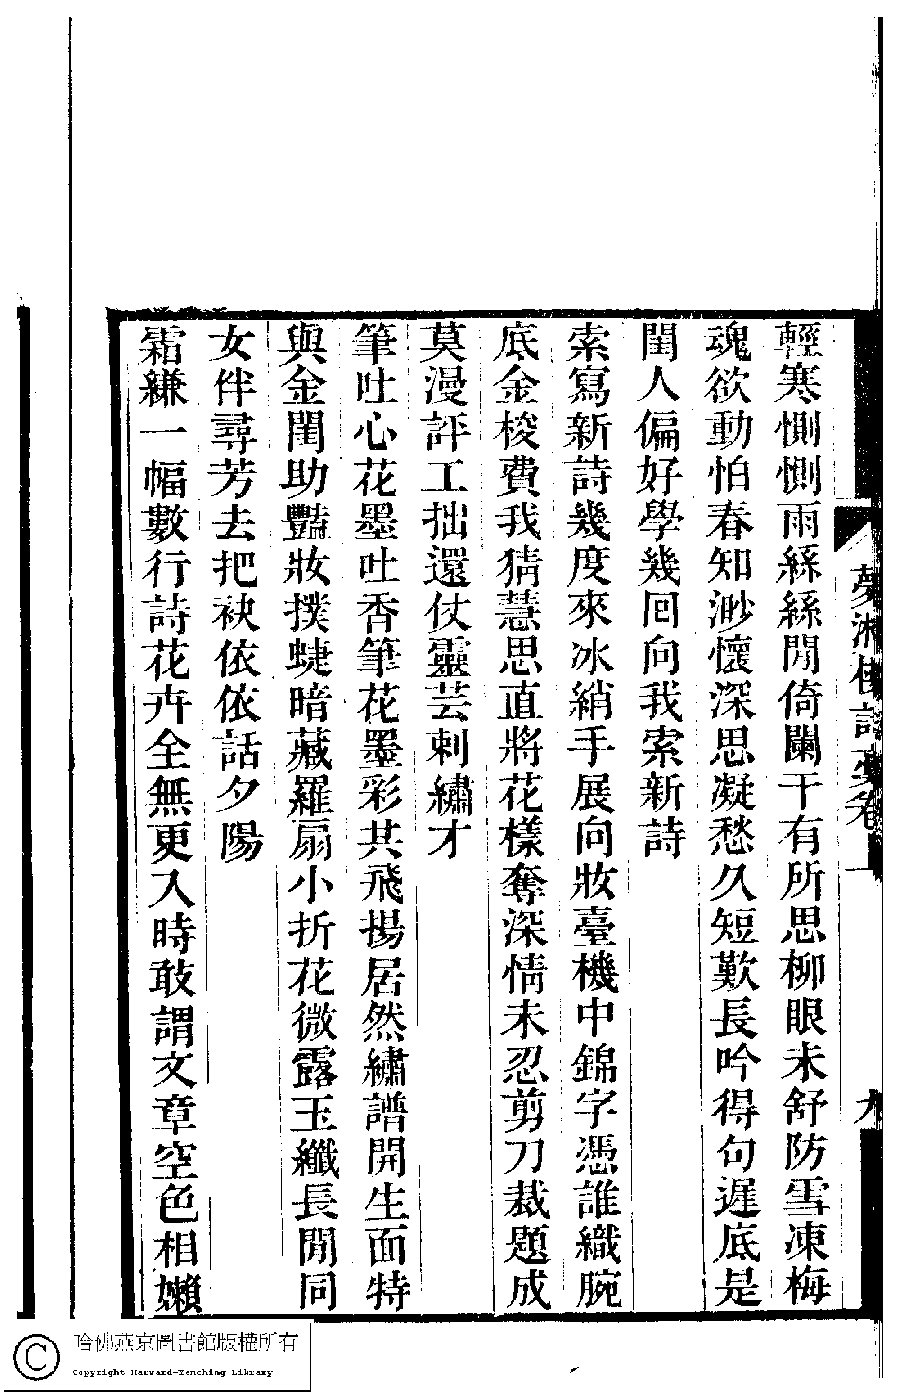 輕寒惻惻雨絲絲閒倚闌干有所思柳眼未舒防雪凍梅
魂欲動怕春知渺懷深思凝愁久短歎長吟得句遲底是
閨人偏好學幾回向我索新詩
索寫新詩幾度來冰綃手展向妝臺機中錦字憑誰織腕
底金梭費我猜慧思直將花樣奪深情未忍剪刀裁題成
莫漫評工拙還仗靈芸刺繡才
筆吐心花墨吐香筆花墨彩共飛揚居然繡譜開生面特
與金閨助豔妝撲蜨暗藏羅扇小折花微露玉纖長閒同
女伴尋芳去把袂依依話夕陽
霜縑一幅數行詩花卉全無更入時敢謂文章空色相嬾
卷一
九
哈佛燕京圖書館版權所有
Copyright Harvard-Yenching Library